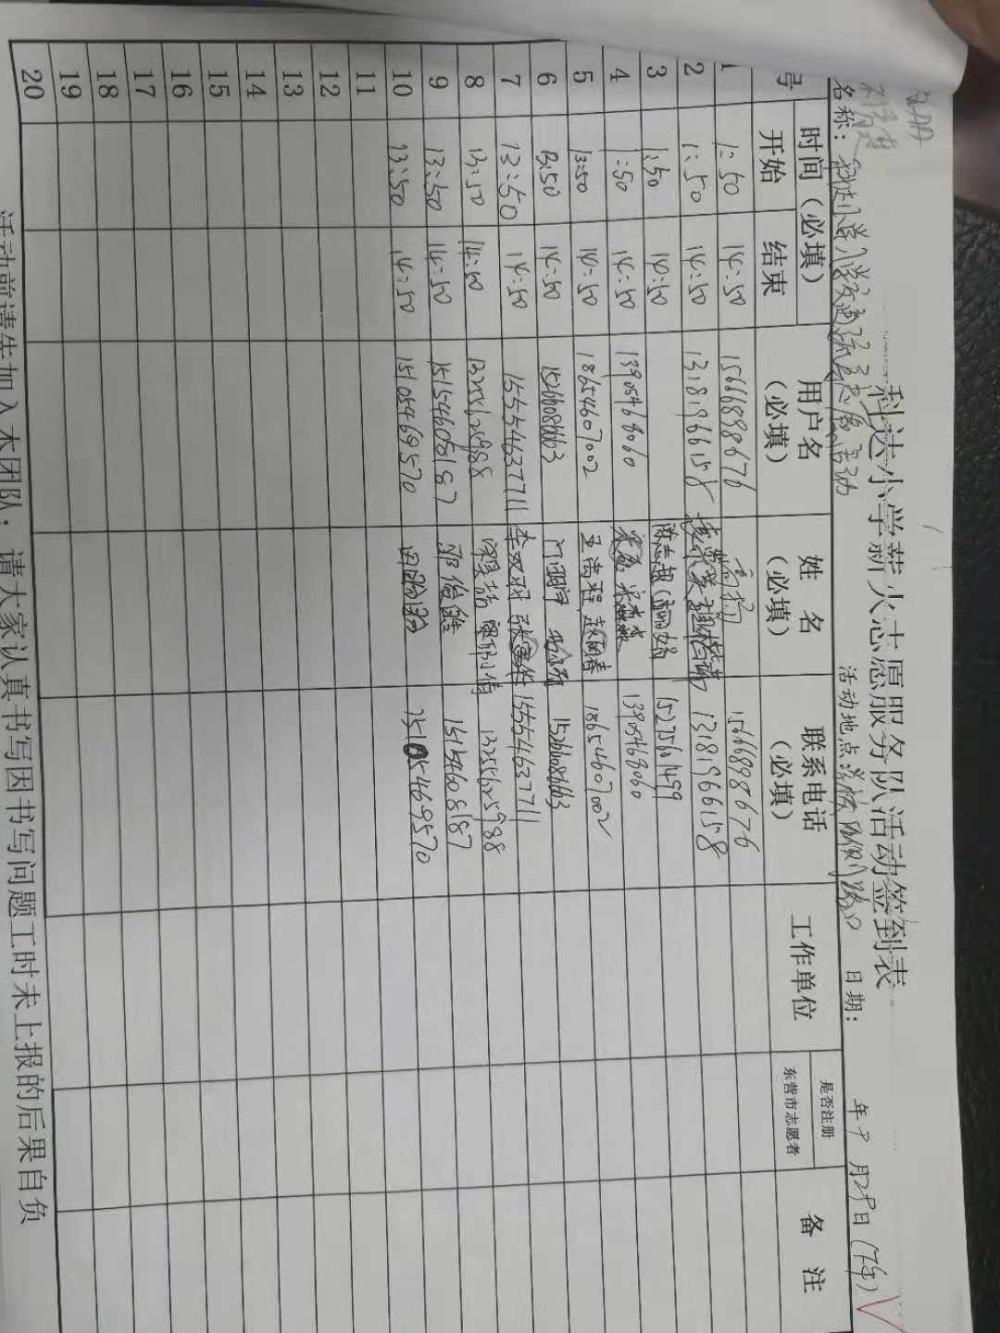 科达小学薪火志愿服务队活动签到表
名称: 科达小学入学交通疏导志愿活动 活动地点: 学校 路口 日期: 年9月29日(下午)
号 时间(必填) 用户名(必填) 姓名(必填) 联系电话(必填) 工作单位 是否注册东营市志愿者 备注
开始 结束
1 1:50 14:50 15666898676 高扬 15666898676
2 1:50 14:50 13181966158 13181966158
3 1:50 14:50 陈志超 15275601499
4 1:50 14:50 13905468060 13905468060
5 13:50 14:50 18654607002 18654607002
6 13:50 14:50 15266086663 15266086663
7 13:50 14:50 15554637711 李双羽 15554637711
8 13:50 14:50 13255625988 13255625988
9 13:50 14:50 15154608187 15154608187
10 13:50 14:50 15105469570 15105469570
11
12
13
14
15
16
17
18
19
20
活动前请先加入本团队; 请大家认真书写因书写问题工时未上报的后果自负